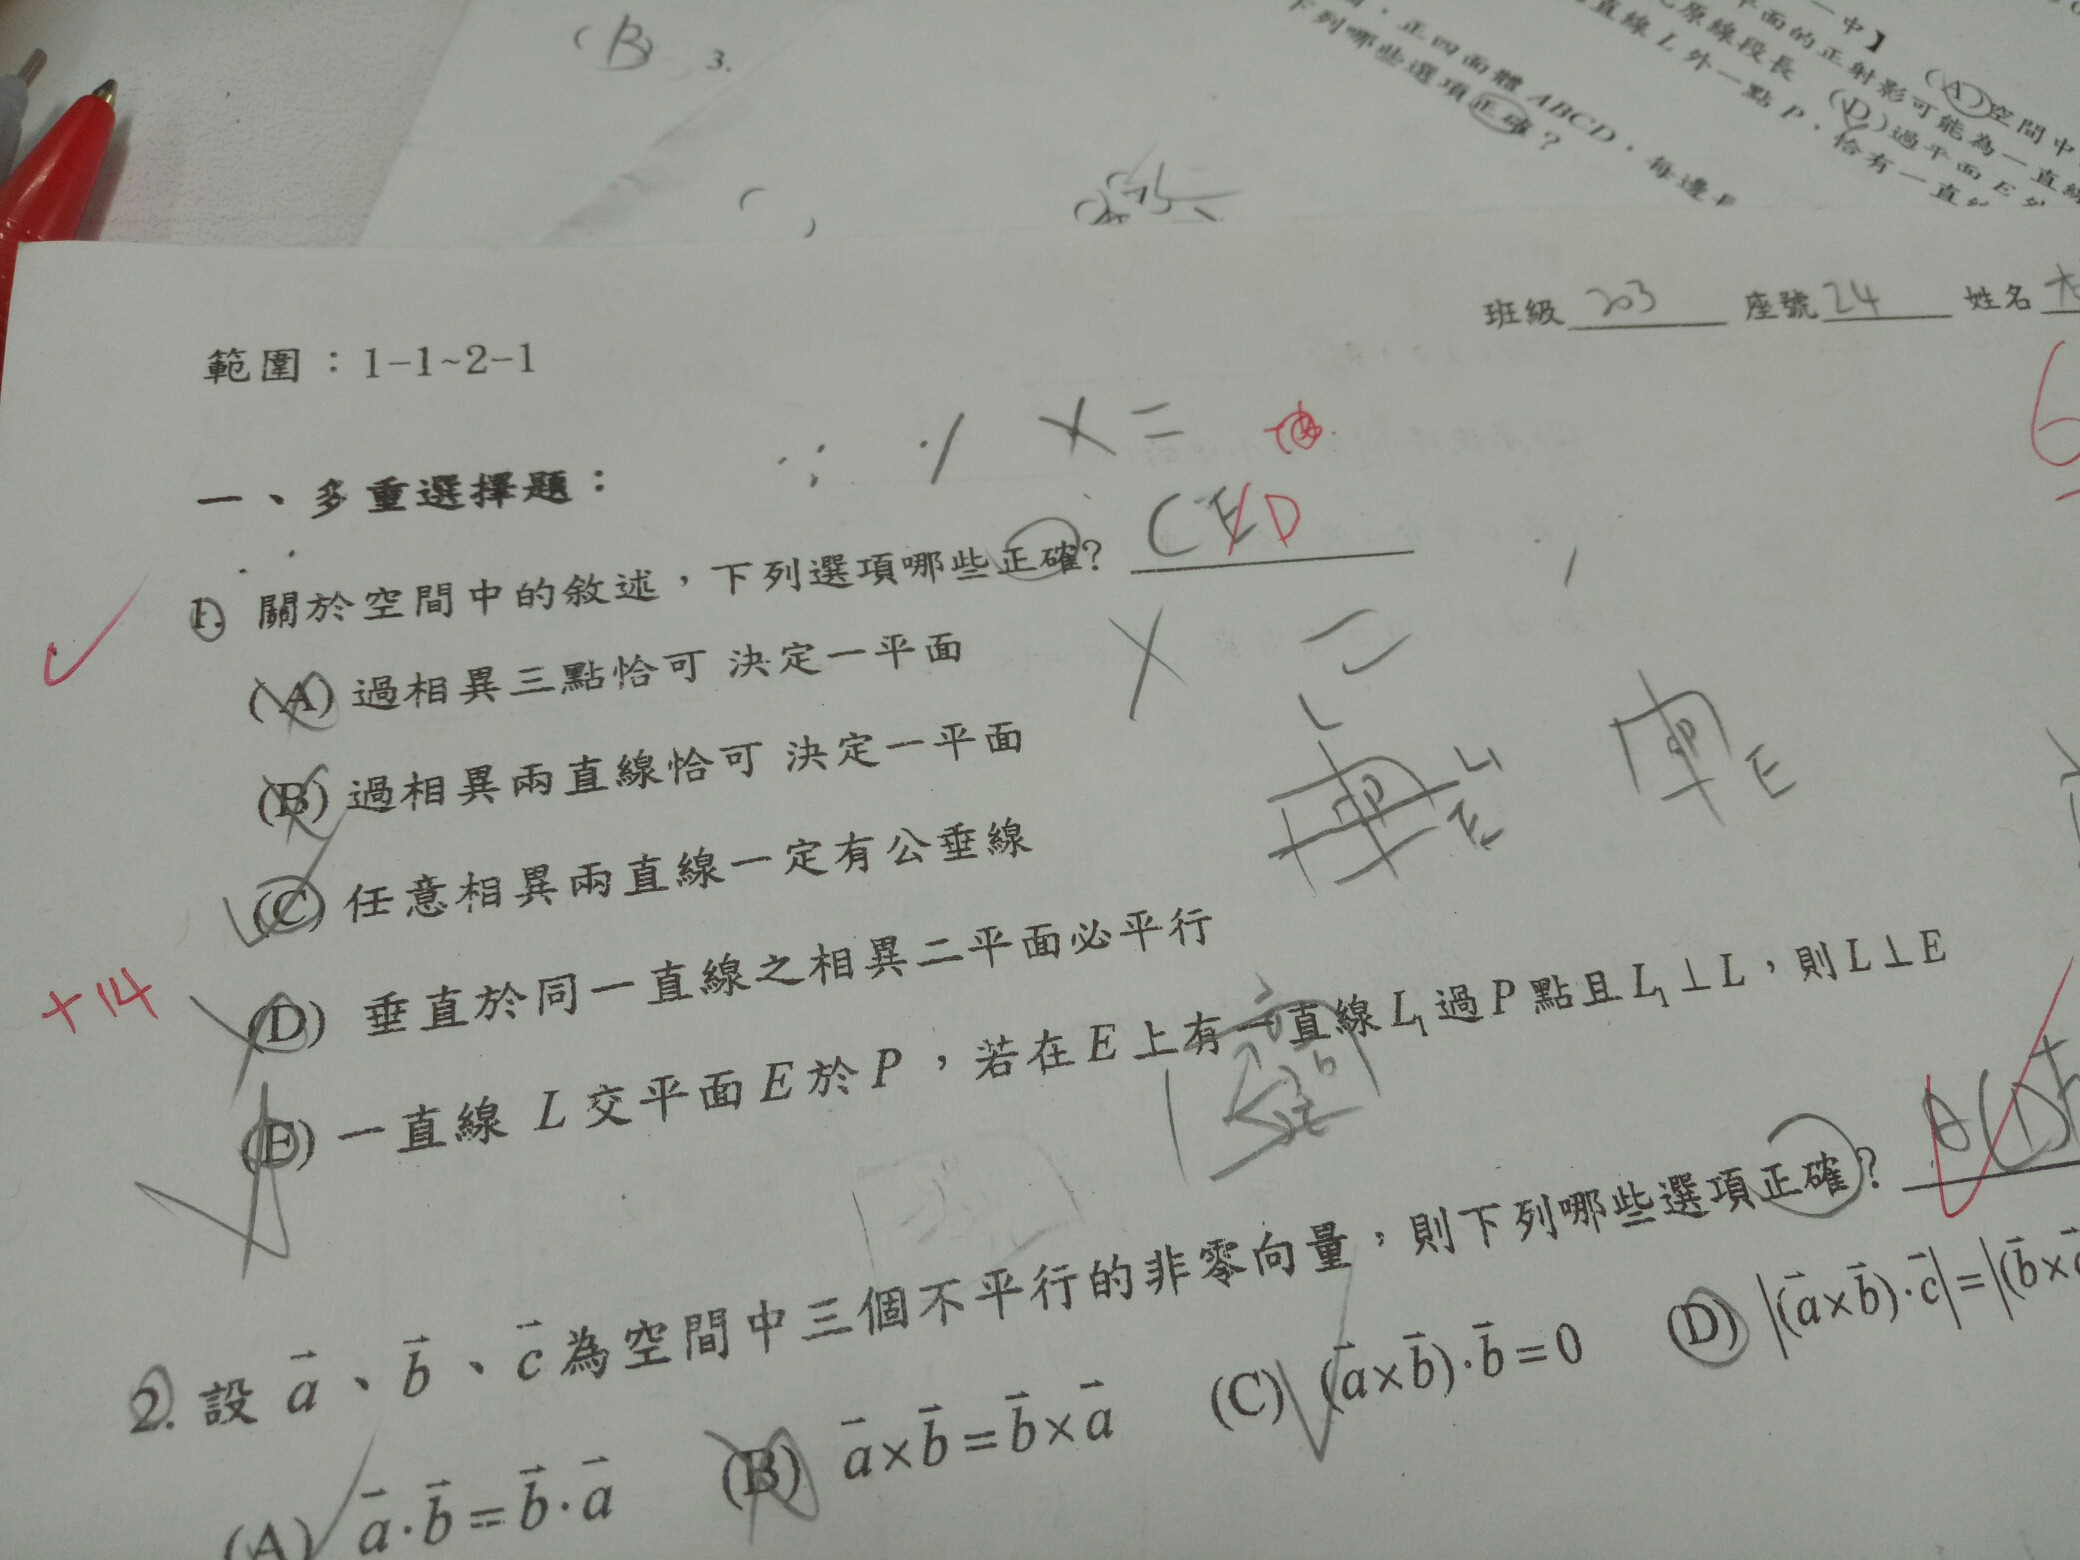 (B) 3.
一中】
平面的正射影可能為一直線
原線段長 (A)空間中
直線 L 外一點 P，恰有一直
(D)過平面 E 外
正四面體 ABCD，每邊
下列哪些選項正確？
班級 203 座號 24 姓名
範圍：1-1~2-1
一、多重選擇題：
1. 關於空間中的敘述，下列選項哪些正確？ CE D
(A) 過相異三點恰可 決定一平面
(B) 過相異兩直線恰可 決定一平面
(C) 任意相異兩直線一定有公垂線
(D) 垂直於同一直線之相異二平面必平行
+14
(E) 一直線 L 交平面 E 於 P，若在 E 上有一直線 L₁ 過 P 點且 L₁⊥L，則 L⊥E
L
L₁
P
E
P
E
2. 設 a⃗、b⃗、c⃗ 為空間中三個不平行的非零向量，則下列哪些選項正確？
(A) a⃗·b⃗=b⃗·a⃗ (B) a⃗×b⃗=b⃗×a⃗ (C) (a⃗×b⃗)·b⃗=0 (D) |(a⃗×b⃗)·c⃗|=|(b⃗×